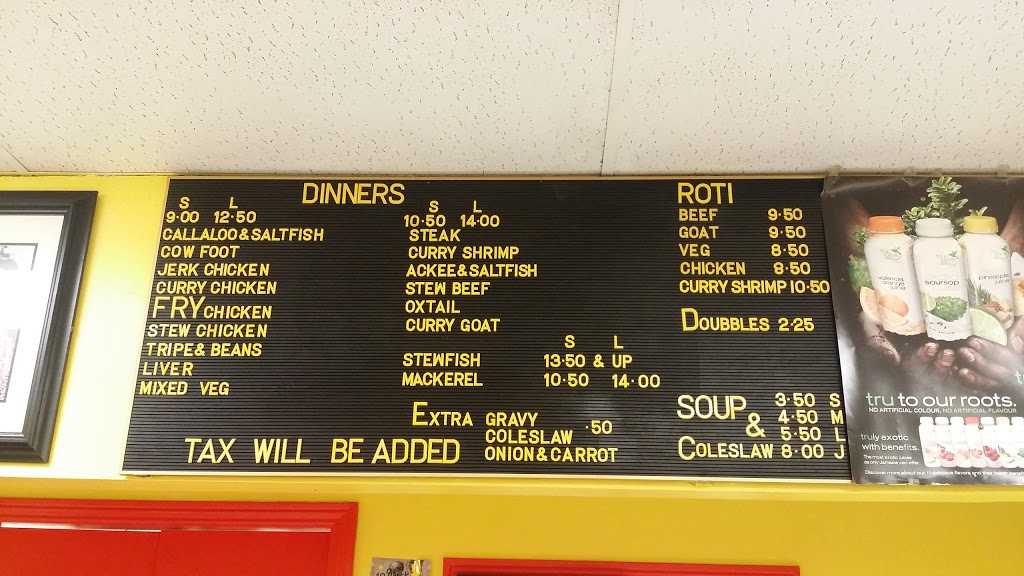 DINNERS
S L
9·00 12·50
CALLALOO&SALTFISH
COW FOOT
JERK CHICKEN
CURRY CHICKEN
FRY CHICKEN
STEW CHICKEN
TRIPE& BEANS
LIVER
MIXED VEG
S L
10·50 14·00
STEAK
CURRY SHRIMP
ACKEE&SALTFISH
STEW BEEF
OXTAIL
CURRY GOAT
S L
STEWFISH 13·50 & UP
MACKEREL 10·50 14·00
EXTRA GRAVY
COLESLAW ·50
ONION&CARROT
TAX WILL BE ADDED
ROTI
BEEF 9·50
GOAT 9·50
VEG 8·50
CHICKEN 8·50
CURRY SHRIMP 10·50
DOUBBLES 2·25
SOUP & COLESLAW
3·50 S
4·50 M
5·50 L
8·00 J
valencia orange juice
soursop
pineapple juice
tru to our roots.
NO ARTIFICIAL COLOUR, NO ARTIFICIAL FLAVOUR
truly exotic
with benefits.
The most exotic juices
as only Jamaica can offer.